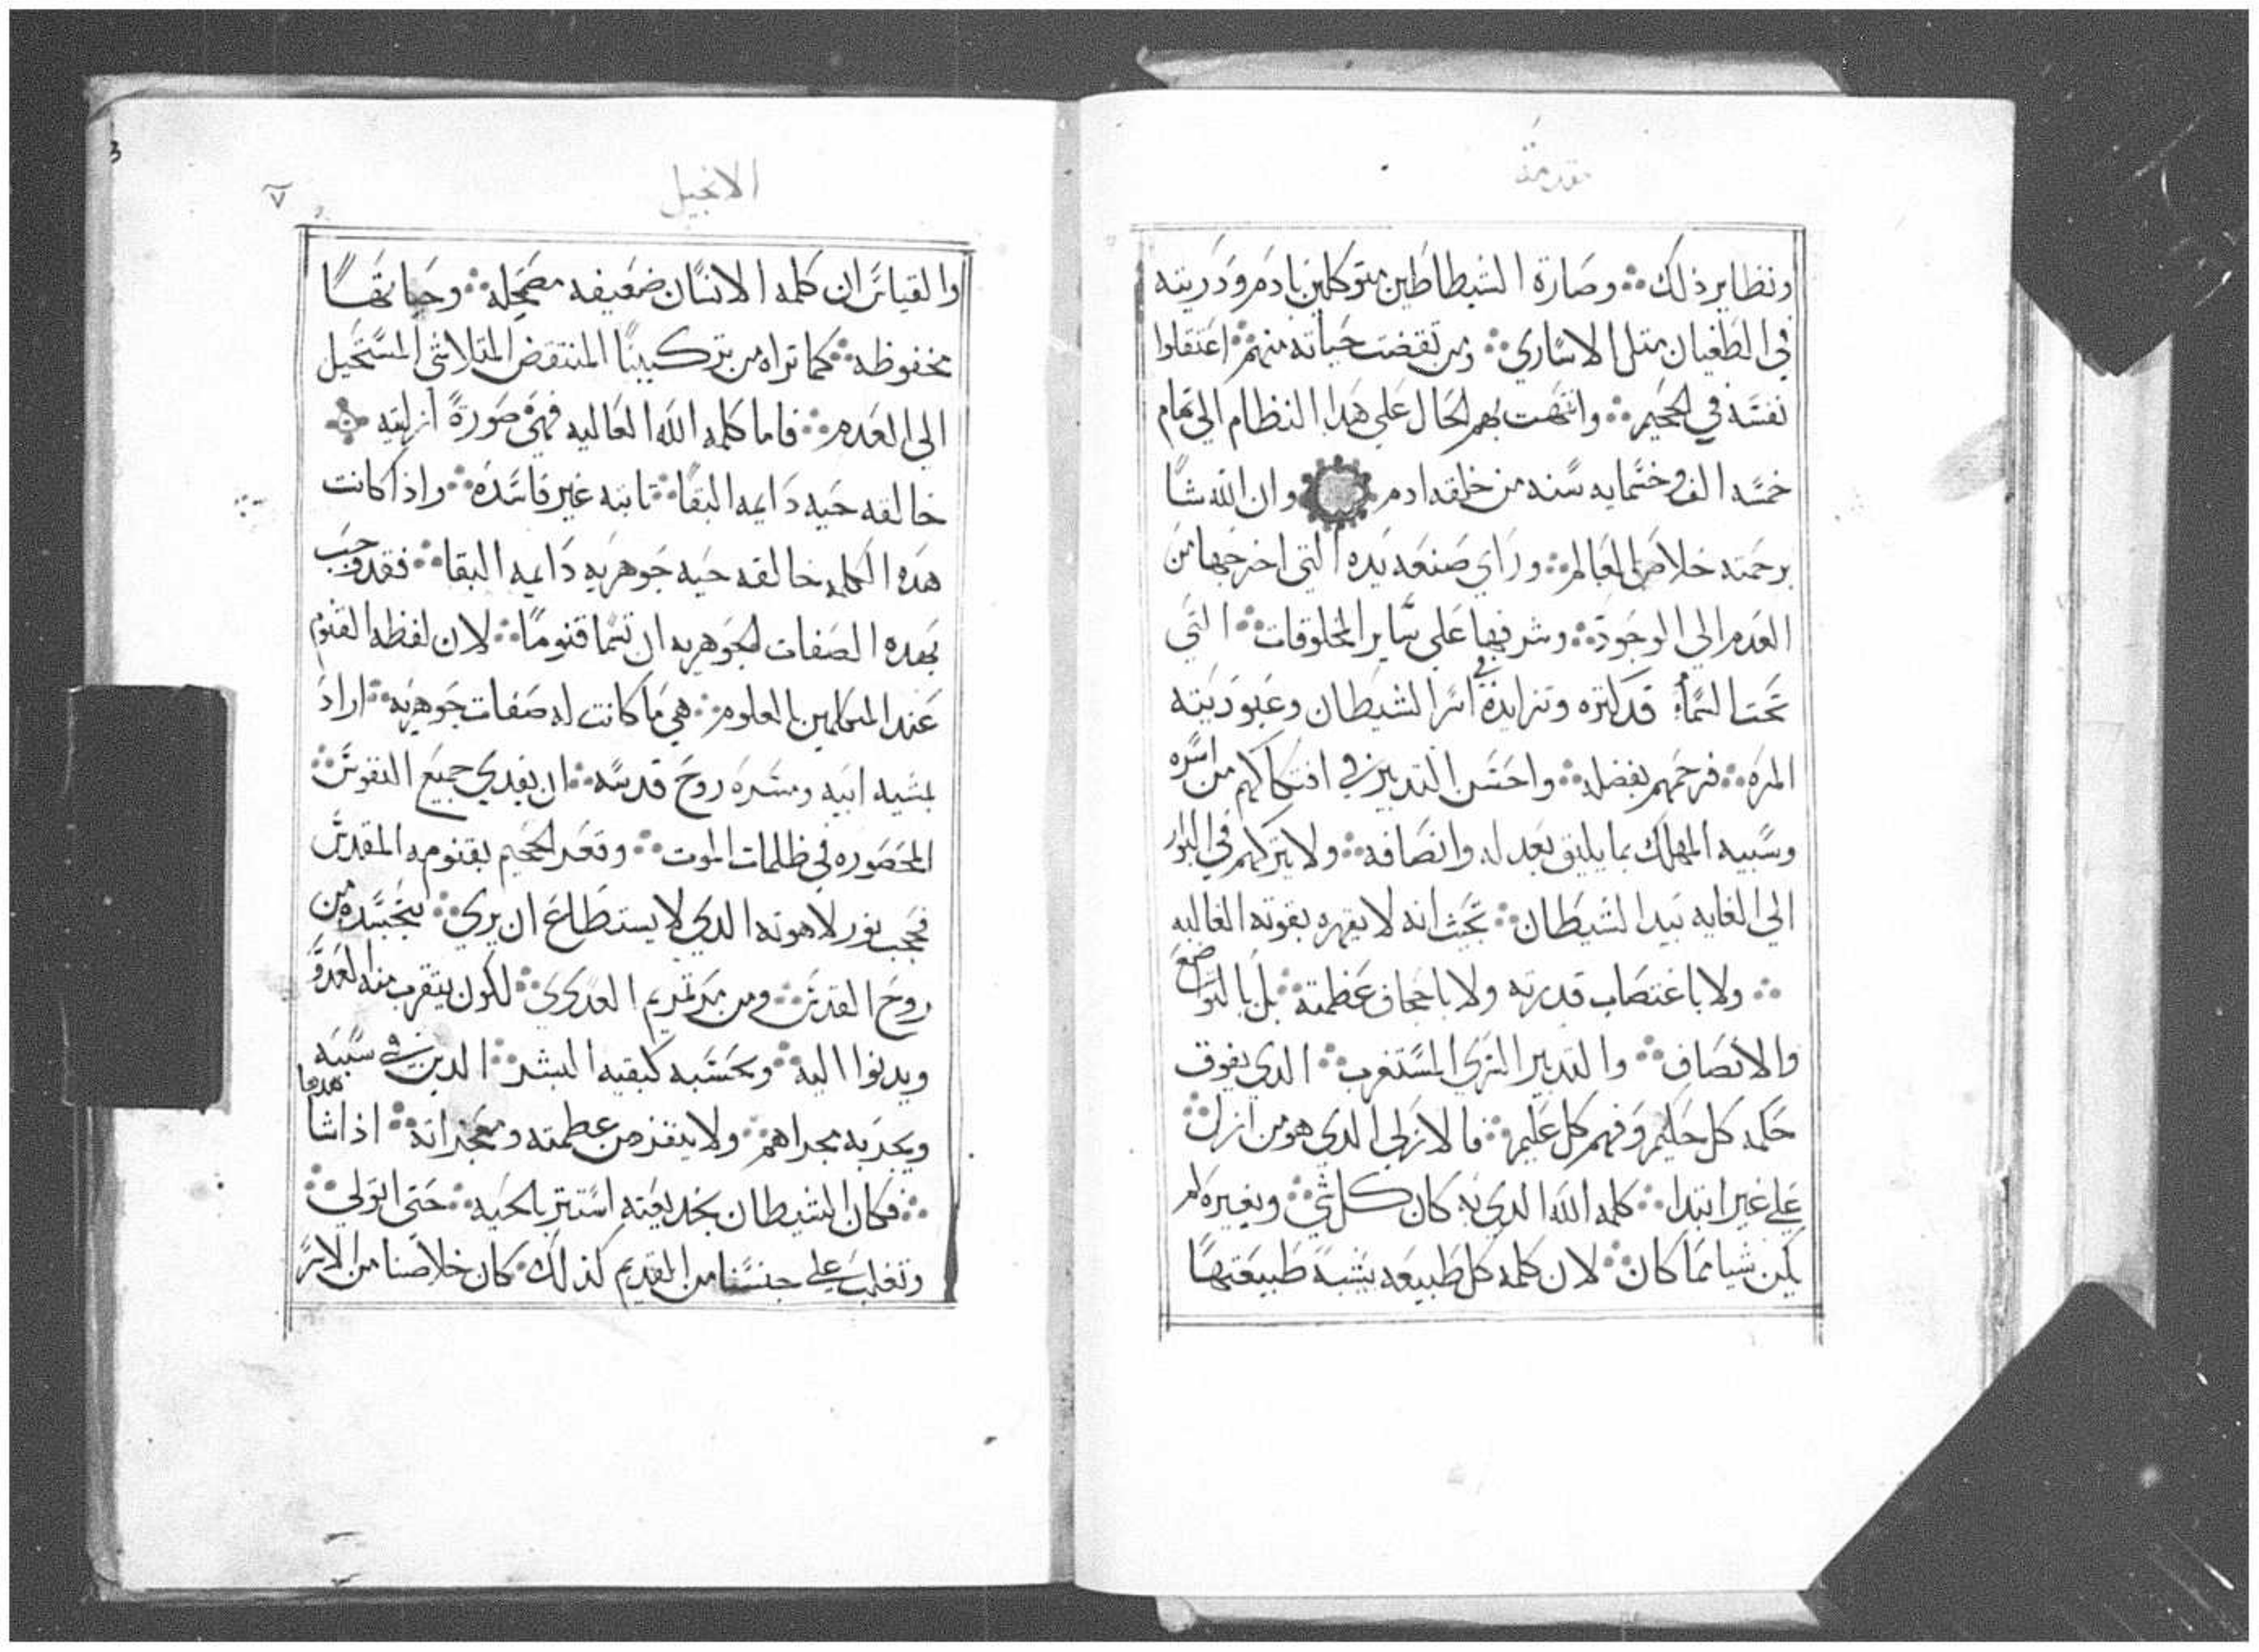 مقدمة
ونظاير ذلك ∴ وصارة الشيطاطين متوكلين بادم ودريته
في الطغيان متل الاساري ∴ ومن تقضت حياته منهم ∴ اعتقلوا
نفسه في الجحيم ∴ وانتهت بهم الحال علي هدا النظام الي تمام
خمسه الف وخمسمايه سنه من خلقه ادم وان الله شا
برحمته خلاص العالم ∴ وراي صنعه يده التي اخرجها من
العدم الي الوجود ∴ وشرفها علي ساير المخلوقات ∴ التي
تحت السماء قد كتره وتزايدة في اسر الشيطان وعبوديته
المره ∴ فرحمهم بفضله ∴ واحسن التدبير في افتكاكهم من اسره
وسبيه المهلك بما يليق بعدله وانصافه ∴ ولا يتركهم في البوار
الي الغايه بيد الشيطان ∴ بحيث انه لا يقهره بقوته الغالبه
∴ ولا باغتصاب قدرته ولا باجحاف عظمته ∴ بل بالتواضع
والانصاف ∴ والتدبير السري المستغرب ∴ الدي يفوق
حكمه كل حكيم وفهم كل عليم ∴ فالازلي الدي هو من ازل ∴
علي غير ابتدا ∴ كلمه الله الدي به كان كل شي ∴ وبغيره لم
يكن شيا مما كان ∴ لان كلمه كل طبيعه يشبه طبيعتها
الانجيل
٧
3
والقياس ان كلمه الانسان ضعيفه مضمحله ∴ وحياتها
محفوظه ∴ كما تراه من تركيبنا المنتقض المتلاشي المستحيل
الي العدم ∴ فاما كلمه الله العاليه فهي صورة ازليته
خالقه حيه دايمه البقا ∴ تابته غير فاسده ∴ واذا كانت
هده الكلمه خالقه حيه جوهريه دايمه البقا ∴ فقد وجب
بهده الصفات الجوهريه ان تسما قنوما ∴ لان لفظه القنوم
عند المتكلمين بالعلوم ∴ هي ما كانت له صفات جوهريه ∴ اراد
بمشيه ابيه ومسره روح قدسه ∴ ان يفدي جميع النفوس ∴
المحصوره في ظلمات الموت ∴ وقعر الجحيم بقنومه المقدس
فحجب نور لاهوته الدي لا يستطاع ان يري ∴ بتجسده من
روح القدس ∴ ومن مرتمريم العدري ∴ لكون يتقرب منه العدو
ويدنوا اليه ∴ ويحسبه كبقيه البشر ∴ الدين في سبيه
ويجربه مجراهم ∴ ولا ينفز من عظمته ومعجزاته ∴ اذا شا هدها
∴ فكان الشيطان بخديعته استتر بالحيه ∴ حتي اتولي ∴
وتغلب علي جنسنا من القديم كذلك ∴ كان خلاصنا من الاسر